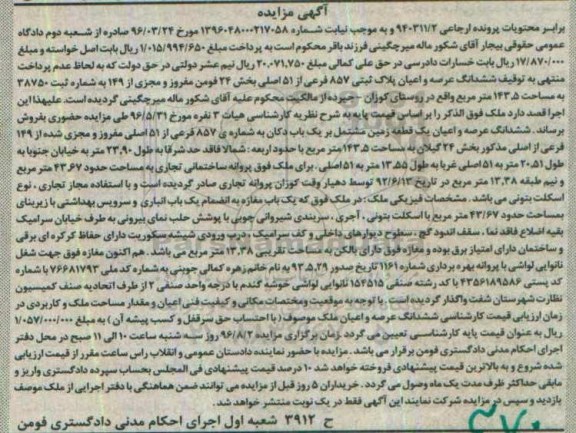 آگهی مزایده
برابر محتویات پرونده ارجاعی ۹۴۰۳۱۱/۲ و به موجب نیابت شماره ۱۳۹۶۰۴۸۰۰۰۲۱۷۰۵۸ مورخ ۹۶/۰۳/۲۴ صادره از شعبه دوم دادگاه
عمومی حقوقی بیجار آقای شکور ماله میرچگینی فرزند باقر محکوم است به پرداخت مبلغ ۱/۰۱۵/۹۹۴/۶۵۰ ریال بابت اصل خواسته و مبلغ
۱۷/۸۷۰/۰۰۰ ریال بابت خسارات دادرسی در حق علی کمالی مبلغ ۲۰,۰۷۱,۷۵۰ ریال نیم عشر دولتی در حق دولت که به لحاظ عدم پرداخت
منتهی به توقیف ششدانگ عرصه و اعیان پلاک ثبتی ۸۵۷ فرعی از ۵۱ اصلی بخش ۲۴ فومن مفروز و مجزی از ۱۴۹ به شماره ثبت ۳۸۷۵۰
به مساحت ۱۴۳,۵ متر مربع واقع در روستای کوزان - جیرده از مالکیت محکوم علیه آقای شکور ماله میرچگینی گردیده است. علیهذا این
اجرا قصد دارد ملک فوق الذکر را بر اساس قیمت پایه به شرح نظریه کارشناسی هیات ۳ نفره مورخ ۹۶/۵/۳۱ طی مزایده حضوری بفروش
برساند. ششدانگ عرصه و اعیان یک قطعه زمین مشتمل بر یک باب دکان به شماره ی ۸۵۷ فرعی از ۵۱ اصلی مفروز و مجزی شده از ۱۴۹
فرعی از اصلی مذکور بخش ۲۴ گیلان به مساحت ۱۴۳,۵ متر مربع با حدود اربعه: شمالا فاقد حد شرقا به طول ۲۳,۹۰ متر به خیابان جنوبا به
طول ۲۰,۵۱ متر به ۵۱ اصلی غربا به طول ۱۳,۵۵ متر به ۵۱ اصلی. برای ملک فوق پروانه ساختمانی تجاری به مساحت حدود ۴۳,۶۷ متر مربع
و نیم طبقه ۱۳,۳۸ متر مربع در تاریخ ۹۲/۶/۱۳ توسط دهیار وقت کوزان پروانه تجاری صادر گردیده است و با استفاده مجاز تجاری، نوع
اسکلت بتونی می باشد. مشخصات فیزیکی ملک: در ملک فوق که یک باب مغازه به انضمام یک باب انباری و سرویس بهداشتی با زیربنای
بمساحت حدود ۴۳/۶۷ متر مربع با اسکلت بتونی، آجری، سربندی شیروانی چوبی با پوشش حلب نمای بیرونی به طرف خیابان سرامیک
بقیه اضلاع فاقد نما، سقف اندود گچ، سطوح دیوارهای داخلی و کف سرامیک، درب ورودی شیشه سکوریت دارای حفاظ کرکره ای برقی
و ساختمان دارای امتیاز برق بوده و مغازه فوق دارای بالکن به مساحت تقریبی ۱۳,۳۸ متر مربع می باشد. هم اکنون مغازه فوق جهت شغل
نانوایی لواشی با پروانه بهره برداری شماره ۱۱۶۱ تاریخ صدور ۹۳,۵,۲۹ به نام خانم زهره کمالی جوبنی به شماره کد ملی ۷۶۶۸۱۷۹۳ با شماره
کد پستی ۴۳۵۶۱۸۹۵۸۶ با کد رشته صنفی ۱۵۴۵۱۵ نانوایی لواشی خوشه گندم با درجه واحد صنفی ۲ از طرف اتحادیه صنف کمیسیون
نظارت شهرستان شفت واگذار گردیده است. با توجه به موقعیت ومختصات مکانی و کیفیت فنی اعیان و مقدار مساحت ملک و کاربردی در
زمان ارزیابی قیمت کارشناسی ششدانگ عرصه و اعیان ملک موصوف (با احتساب حق سرقفل و کسب پیشه آن) به مبلغ ۱/۰۵۷/۰۰۰/۰۰۰
ریال به عنوان قیمت پایه کارشناسی تعیین می گردد. زمان برگزاری مزایده ۹۶/۸/۲ روز سه شنبه ساعت ۱۰ الی ۱۱ صبح در محل دفتر
اجرای احکام مدنی دادگستری فومن برقرار می باشد. مزایده با حضور نماینده دادستان عمومی و انقلاب راس ساعت مقرر از قیمت ارزیابی
شده شروع و به بالاترین قیمت پیشنهادی فروخته خواهد شد ۱۰ درصد قیمت پیشنهادی فی المجلس بحساب سپرده دادگستری واریز و
مابقی حداکثر ظرف مدت یک ماه وصول می گردد. خریداران ۵ روز قبل از مزایده می توانند ضمن هماهنگی با دفتر اجرایی از ملک موصف
بازدید و سپس در مزایده شرکت نمایند این آگهی فقط در یک نوبت منتشر خواهد شد.
ح ۳۹۱۲ شعبه اول اجرای احکام مدنی دادگستری فومن